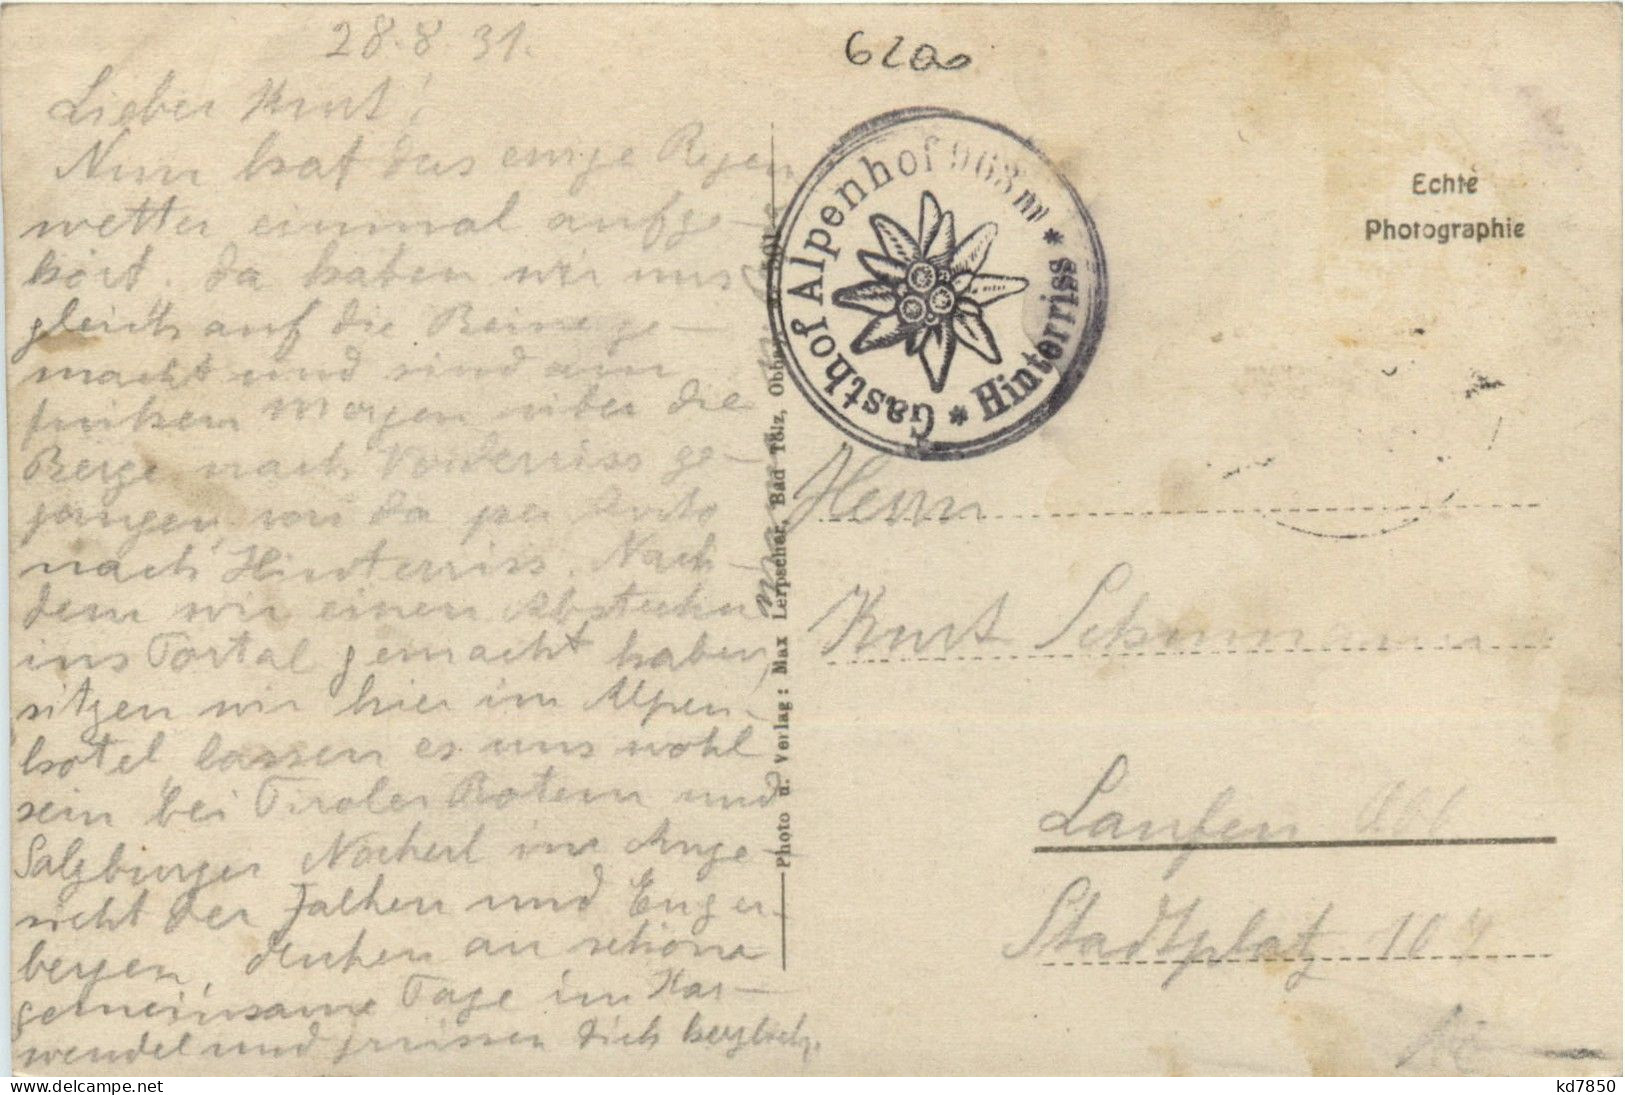 28.8.31.
Lieber Kurt!
Nun hat das ewige Regen
wetter einmal aufge-
hört. da haben wir uns
gleich auf die Beine ge-
macht und sind am
frühen Morgen über die
Berge nach Vorderriss ge-
gangen, von da per Auto
nach Hinterriss. Nach-
dem wir einen Abstecher
ins Tortal gemacht haben,
sitzen wir hier im Alpen-
hotel lassen es uns wohl
sein bei Tiroler Rotem und
Salzburger Nockerl im Ange-
sicht der Falken und Enger-
bergen, denken an schöne
gemeinsame Tage im Kar-
wendel und grüssen dich herzlich.
Photo u. Verlag: Max Lerpscher, Bad Tölz, Obb.
6200
Gasthof Alpenhof 963 m * Hinterriss *
Echte
Photographie
Herrn
Kurt Schumann
Laufen Obb
Stadtplatz
kd7850